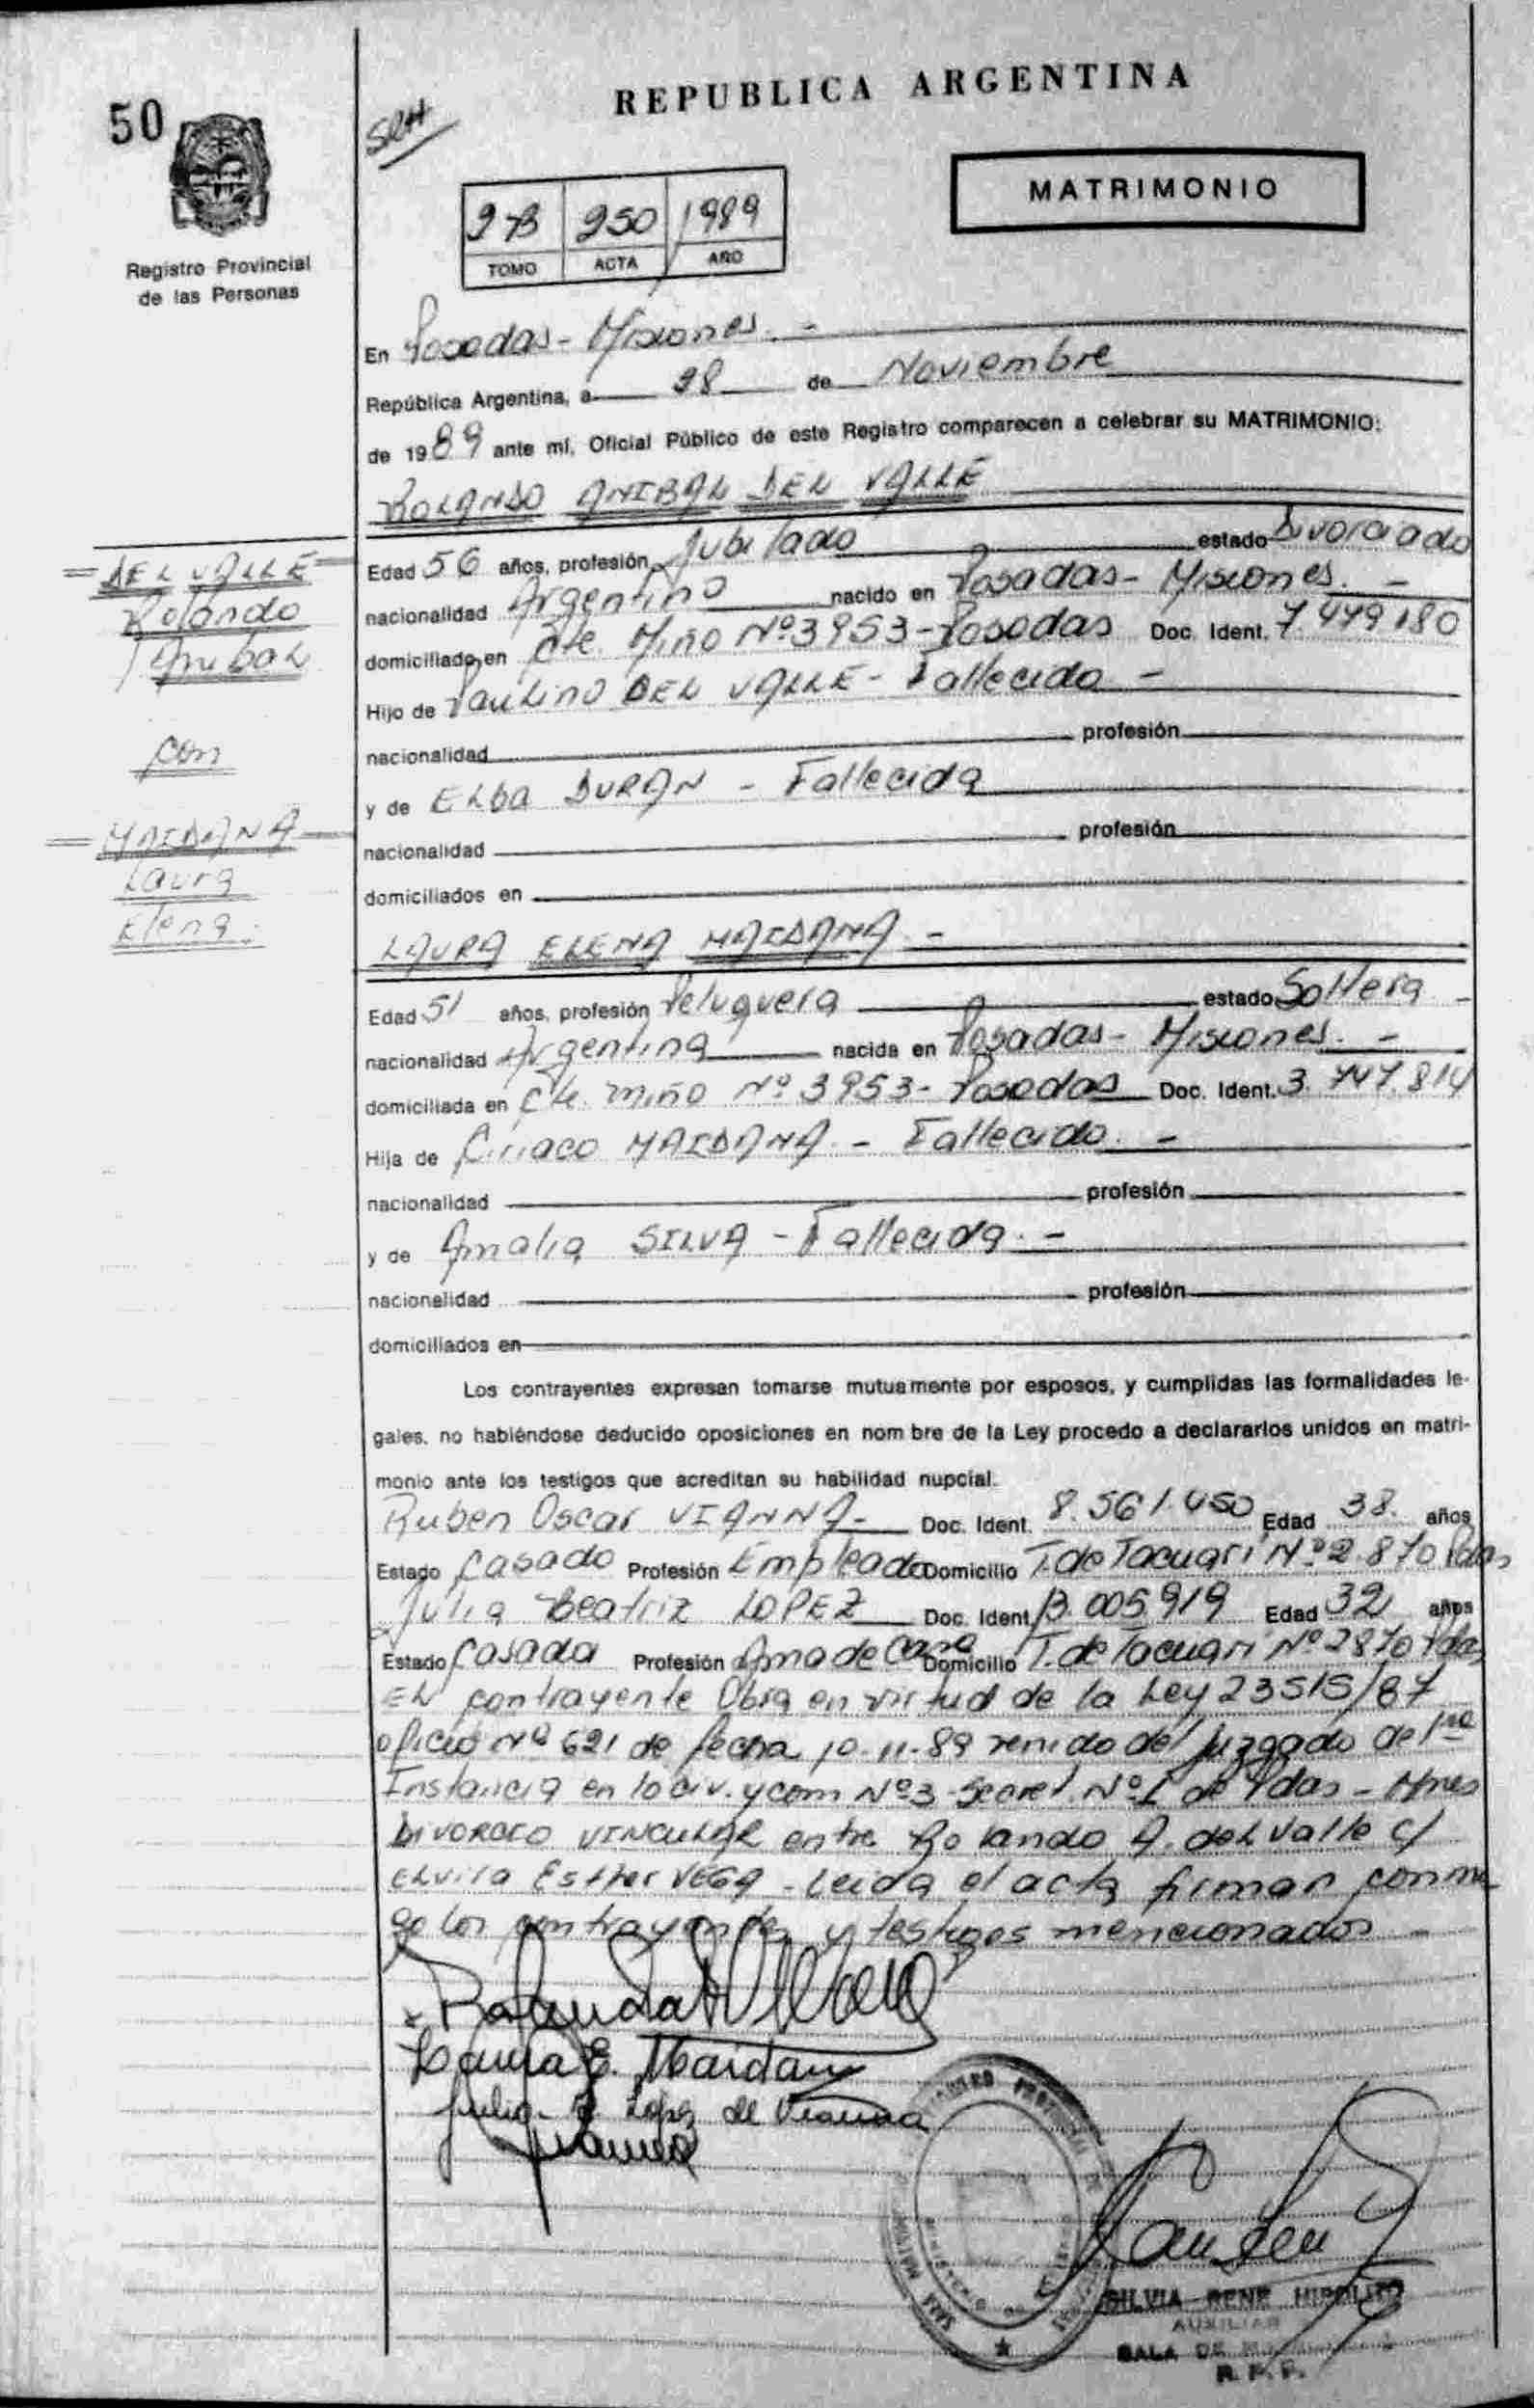 50
SRH
REPUBLICA ARGENTINA
MATRIMONIO
2-B 250 1989
TOMO ACTA AÑO
Registro Provincial
de las Personas
En Posadas - Misiones. -
República Argentina, a 28 de Noviembre
de 1989 ante mí, Oficial Público de este Registro comparecen a celebrar su MATRIMONIO:
ROLANDO ANIBAL DEL VALLE
DEL VALLE
Rolando
Anibal
con
MAIDANA
Laura
Elena.
Edad 56 años, profesión Jubilado estado Divorciado
nacionalidad Argentino nacido en Posadas - Misiones. -
domiciliado en Cte. Miño Nº 3953 - Posadas Doc. Ident. 7.479.180
Hijo de Paulino DEL VALLE - Fallecido -
nacionalidad profesión
y de Elba DURAN - Fallecida
nacionalidad profesión
domiciliados en
LAURA ELENA MAIDANA. -
Edad 51 años, profesión Peluquera estado Soltera -
nacionalidad Argentina nacida en Posadas - Misiones. -
domiciliada en Cte. Miño Nº 3953 - Posadas Doc. Ident. 3.747.814
Hija de Ciriaco MAIDANA. - Fallecido. -
nacionalidad profesión
y de Amalia SILVA - Fallecida. -
nacionalidad profesión
domiciliados en
Los contrayentes expresan tomarse mutuamente por esposos, y cumplidas las formalidades le-
gales, no habiéndose deducido oposiciones en nom bre de la Ley procedo a declararlos unidos en matri-
monio ante los testigos que acreditan su habilidad nupcial.
Ruben Oscar VIANNA. Doc. Ident. 8.561.450 Edad 38. años
Estado Casado Profesión Empleado Domicilio T. de Tacuarí Nº 2.870 Pdas
Julia Beatriz LOPEZ Doc. Ident. 13.005.919 Edad 32 años
Estado Casada Profesión Ama de Casa Domicilio T. de Tacuarí Nº 2870 Pdas
El contrayente Obra en virtud de la Ley 23515/87
oficio Nº 621 de fecha 10-11-89 venido del Juzgado de 1ra
Instancia en lo civ. y com Nº 3 - Secret. Nº 1 de Pdas - Mnes
DIVORCIO VINCULAR entre Rolando A. del Valle c/
Elvira Esther VEGA - Leída el acta firman conmi
go los contrayentes y testigos mencionados -
Laura E. Maidana
Julia B. Lopez de Vianna
Vianna
SILVIA RENE HIPOLITO
AUXILIAR
SALA DE
R. P. P.